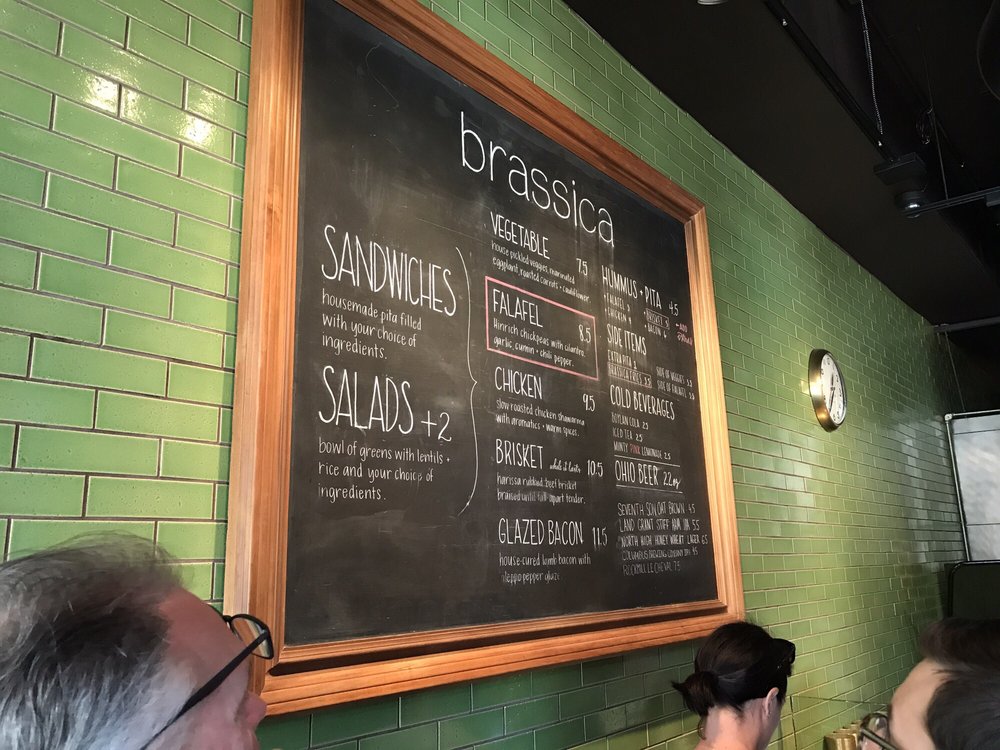 brassica
SANDWICHES
housemade pita filled
with your choice of
ingredients.
SALADS +2
bowl of greens with lentils +
rice and your choice of
ingredients.
VEGETABLE 7.5
house pickled veggies, marinated
eggplant, roasted carrots + cauliflower.
FALAFEL 8.5
Hinrich chickpeas with cilantro,
garlic, cumin + chili pepper.
CHICKEN 9.5
slow roasted chicken shawarma
with aromatics + warm spices.
BRISKET while it lasts 10.5
harissa rubbed beef brisket
braised until fall-apart tender.
GLAZED BACON 11.5
house-cured lamb bacon with
aleppo pepper glaze.
HUMMUS + PITA 4.5
+ FALAFEL 3
+ BRISKET 5
+ CHICKEN 4
+ BACON 6
SIDE ITEMS
EXTRA PITA 1
SIDE OF VEGGIES 3.5
BRASSICA FRIES 3.5
SIDE OF FALAFEL 3.5
COLD BEVERAGES
BOYLAN COLA 2.5
ICED TEA 2.5
MINTY PINK LEMONADE 2.5
OHIO BEER 22oz
SEVENTH SON OAT BROWN 4.5
LAND GRANT STIFF PAW IPA 5.5
NORTH HIGH HONEY WHEAT LAGER 6.5
COLUMBUS BREWING COMPANY BPA 4.5
ROCKMILL LE CHEVAL 7.5